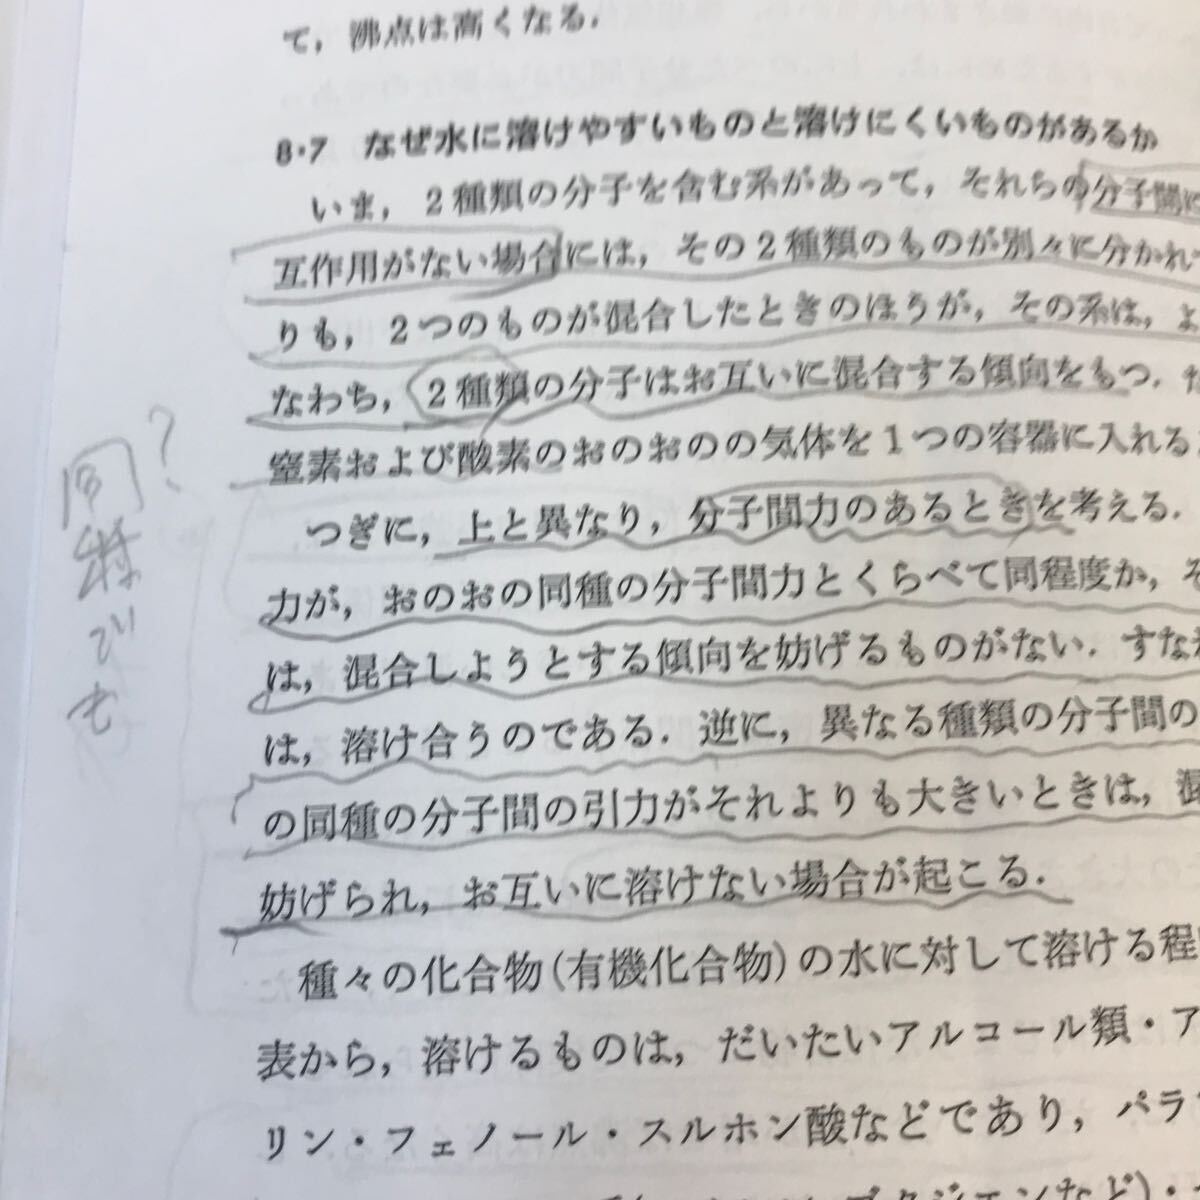 て，沸点は高くなる．
8・7 なぜ水に溶けやすいものと溶けにくいものがあるか
いま，2種類の分子を含む系があって，それらの分子間に
互作用がない場合には，その2種類のものが別々に分かれ
りも，2つのものが混合したときのほうが，その系は，よ
なわち，2種類の分子はお互いに混合する傾向をもつ．
窒素および酸素のおのおのの気体を1つの容器に入れる
つぎに，上と異なり，分子間力のあるときを考える．
力が，おのおの同種の分子間力とくらべて同程度か，そ
は，混合しようとする傾向を妨げるものがない．すなわ
は，溶け合うのである．逆に，異なる種類の分子間の
の同種の分子間の引力がそれよりも大きいときは，混
妨げられ，お互いに溶けない場合が起こる．
種々の化合物（有機化合物）の水に対して溶ける程
表から，溶けるものは，だいたいアルコール類・ア
リン・フェノール・スルホン酸などであり，パラ
ブタジエンなど）・
同種でも？